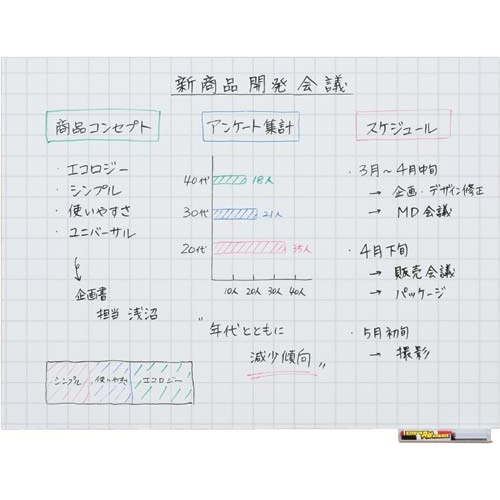 新商品開発会議
商品コンセプト
・エコロジー
・シンプル
・使いやすさ
・ユニバーサル
企画書
担当 浅沼
シンプル 使いやすさ エコロジー
アンケート集計
40代 18人
30代 21人
20代 35人
10人 20人 30人 40人
〝年代とともに
減少傾向〟
スケジュール
・3月～4月中旬
→ 企画・デザイン修正
→ MD会議
・4月下旬
→ 販売会議
→ パッケージ
・5月初旬
→ 撮影